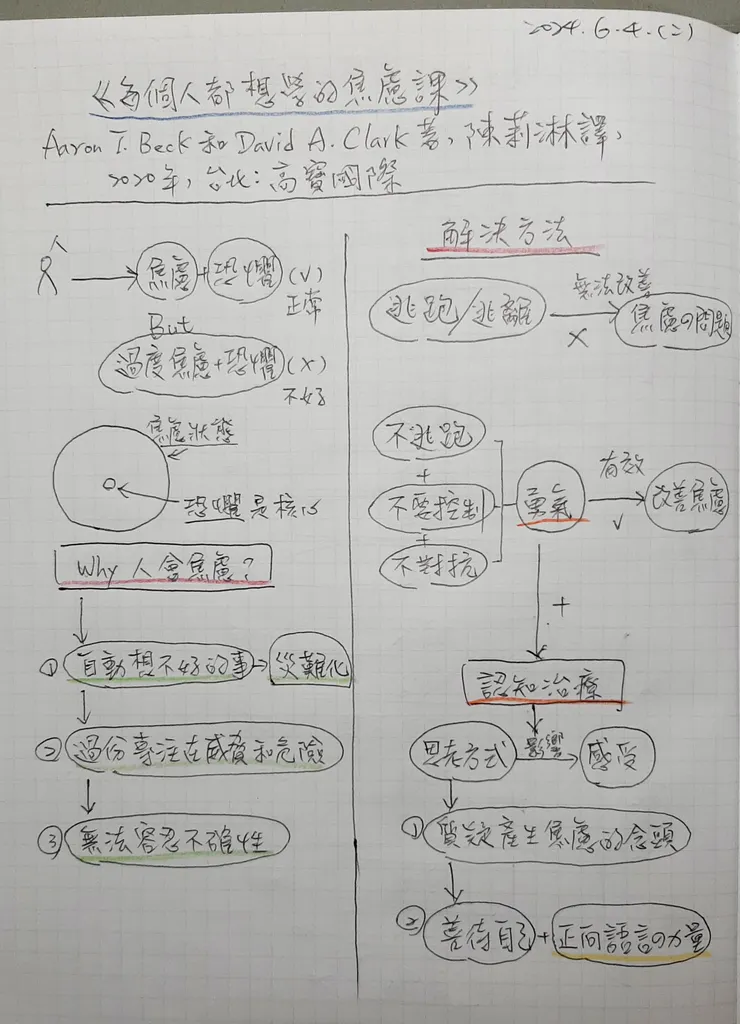 2024.6.4.(二)
《每個人都想學的焦慮課》
Aaron T. Beck 和 David A. Clark 著，陳莉淋譯，
2020年，台北：高寶國際
人
焦慮 + 恐懼 (V)
正常
But
過度焦慮+恐懼 (X)
不好
焦慮狀態
恐懼是核心
Why 人會焦慮？
① 自動想不好的事 災難化
② 過份專注在威脅和危險
③ 無法容忍不確性
解決方法
逃跑/逃離 無法改善 X 焦慮の問題
不逃跑
+
不要控制
+
不對抗
勇氣 有效 V 改善焦慮
+
認知治療
思考方式 影響 感受
① 質疑產生焦慮的念頭
② 善待自己 + 正向語言の力量